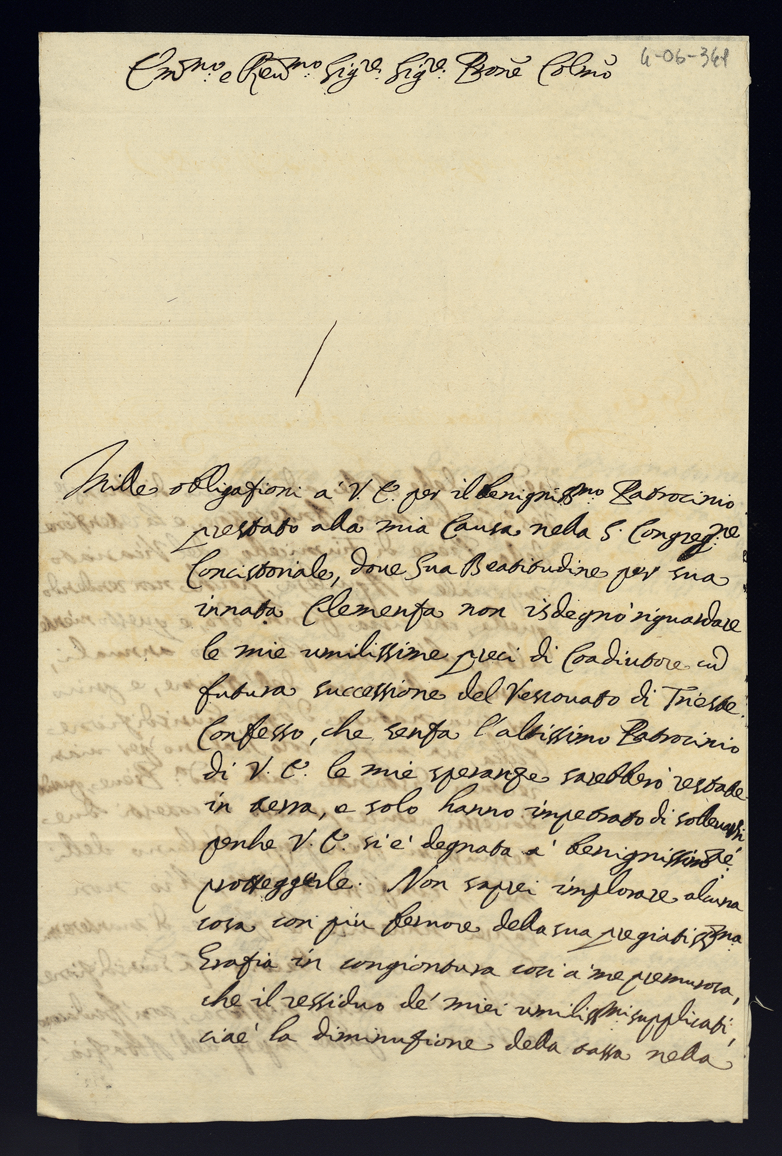 4-06-361
Em:mo e Reu:mo Sig:re Sig:re Prone Colmo
Mille obligationi a' V. E. per il benigniss:mo Patrocinio
prestato alla mia Causa nella S. Congreg:ne
Concistoriale, doue Sua Beatitudine per sua
innata Clemenza non isdegnò riguardare
le mie umilissime preci di Coadiutore cū
futura successione del Vescouato di Trieste.
Confesso, che senza l'altissimo Patrocinio
di V. E. le mie speranze sarebbero restate
in terra, e solo hanno impetrato di solleuarsi
perche V. E. si e' degnata a' benignissim:te
proteggerle. Non saprei implorare alcuna
cosa con piu feruore della sua pregiatiss:ma
Grazia in congiontura cosi a' me premurosa,
che il residuo de' miei umiliss:mi supplicati,
cioe' la diminuzione della tassa nella